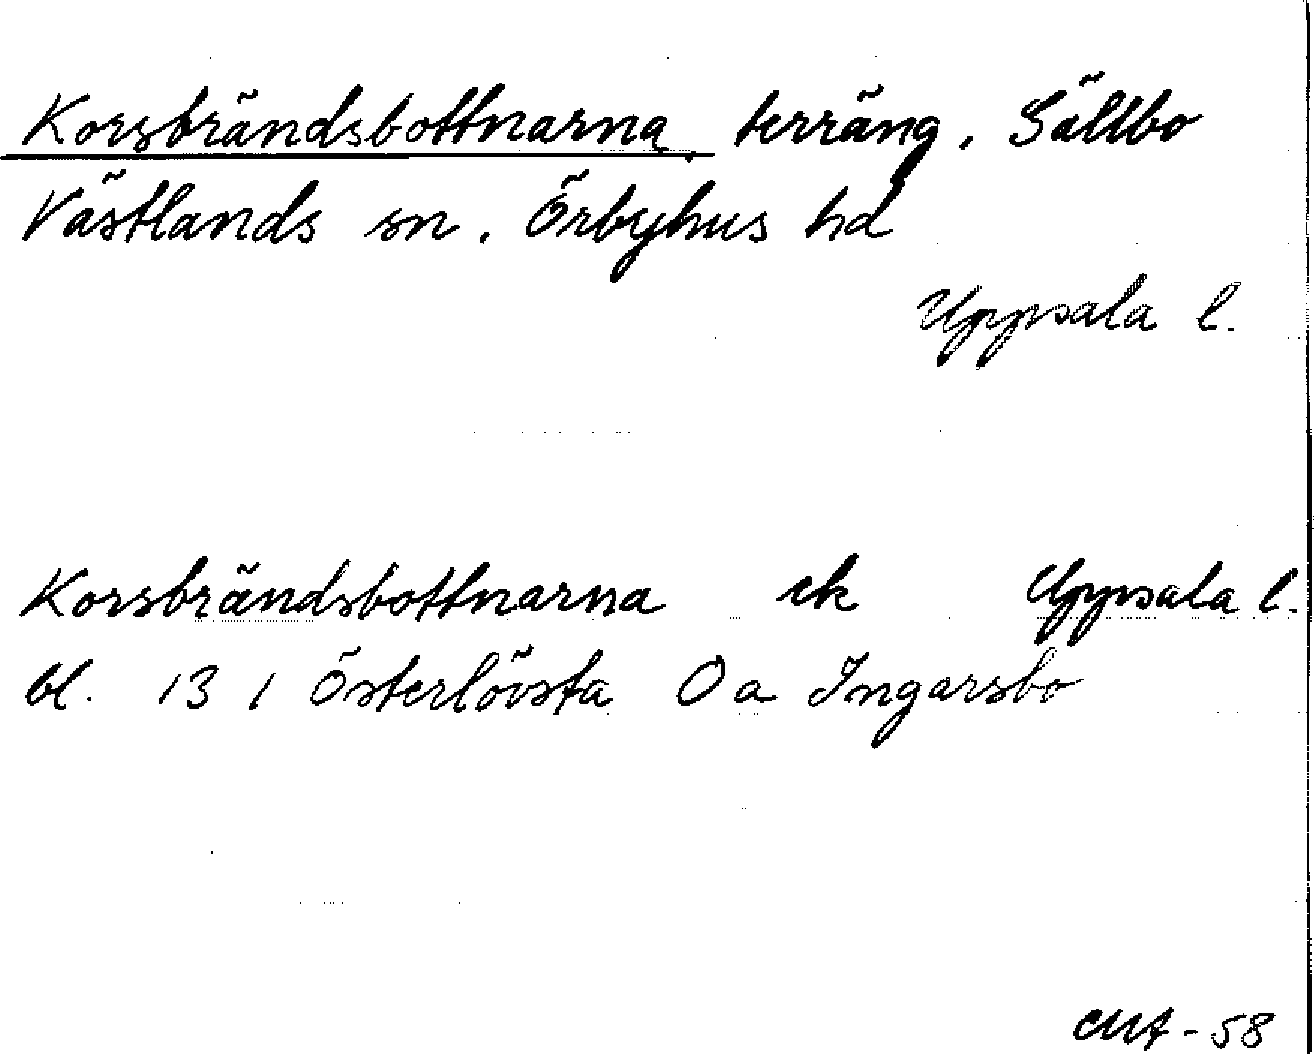 Korsbrändsbottnarna, terräng, Sältbo
Västlands sn, Örbyhus hd
Uppsala l.
Korsbrändsbottnarna ek Uppsala l.
bl. 13 I Österlövsta O a Ingarsbo
CMA-58